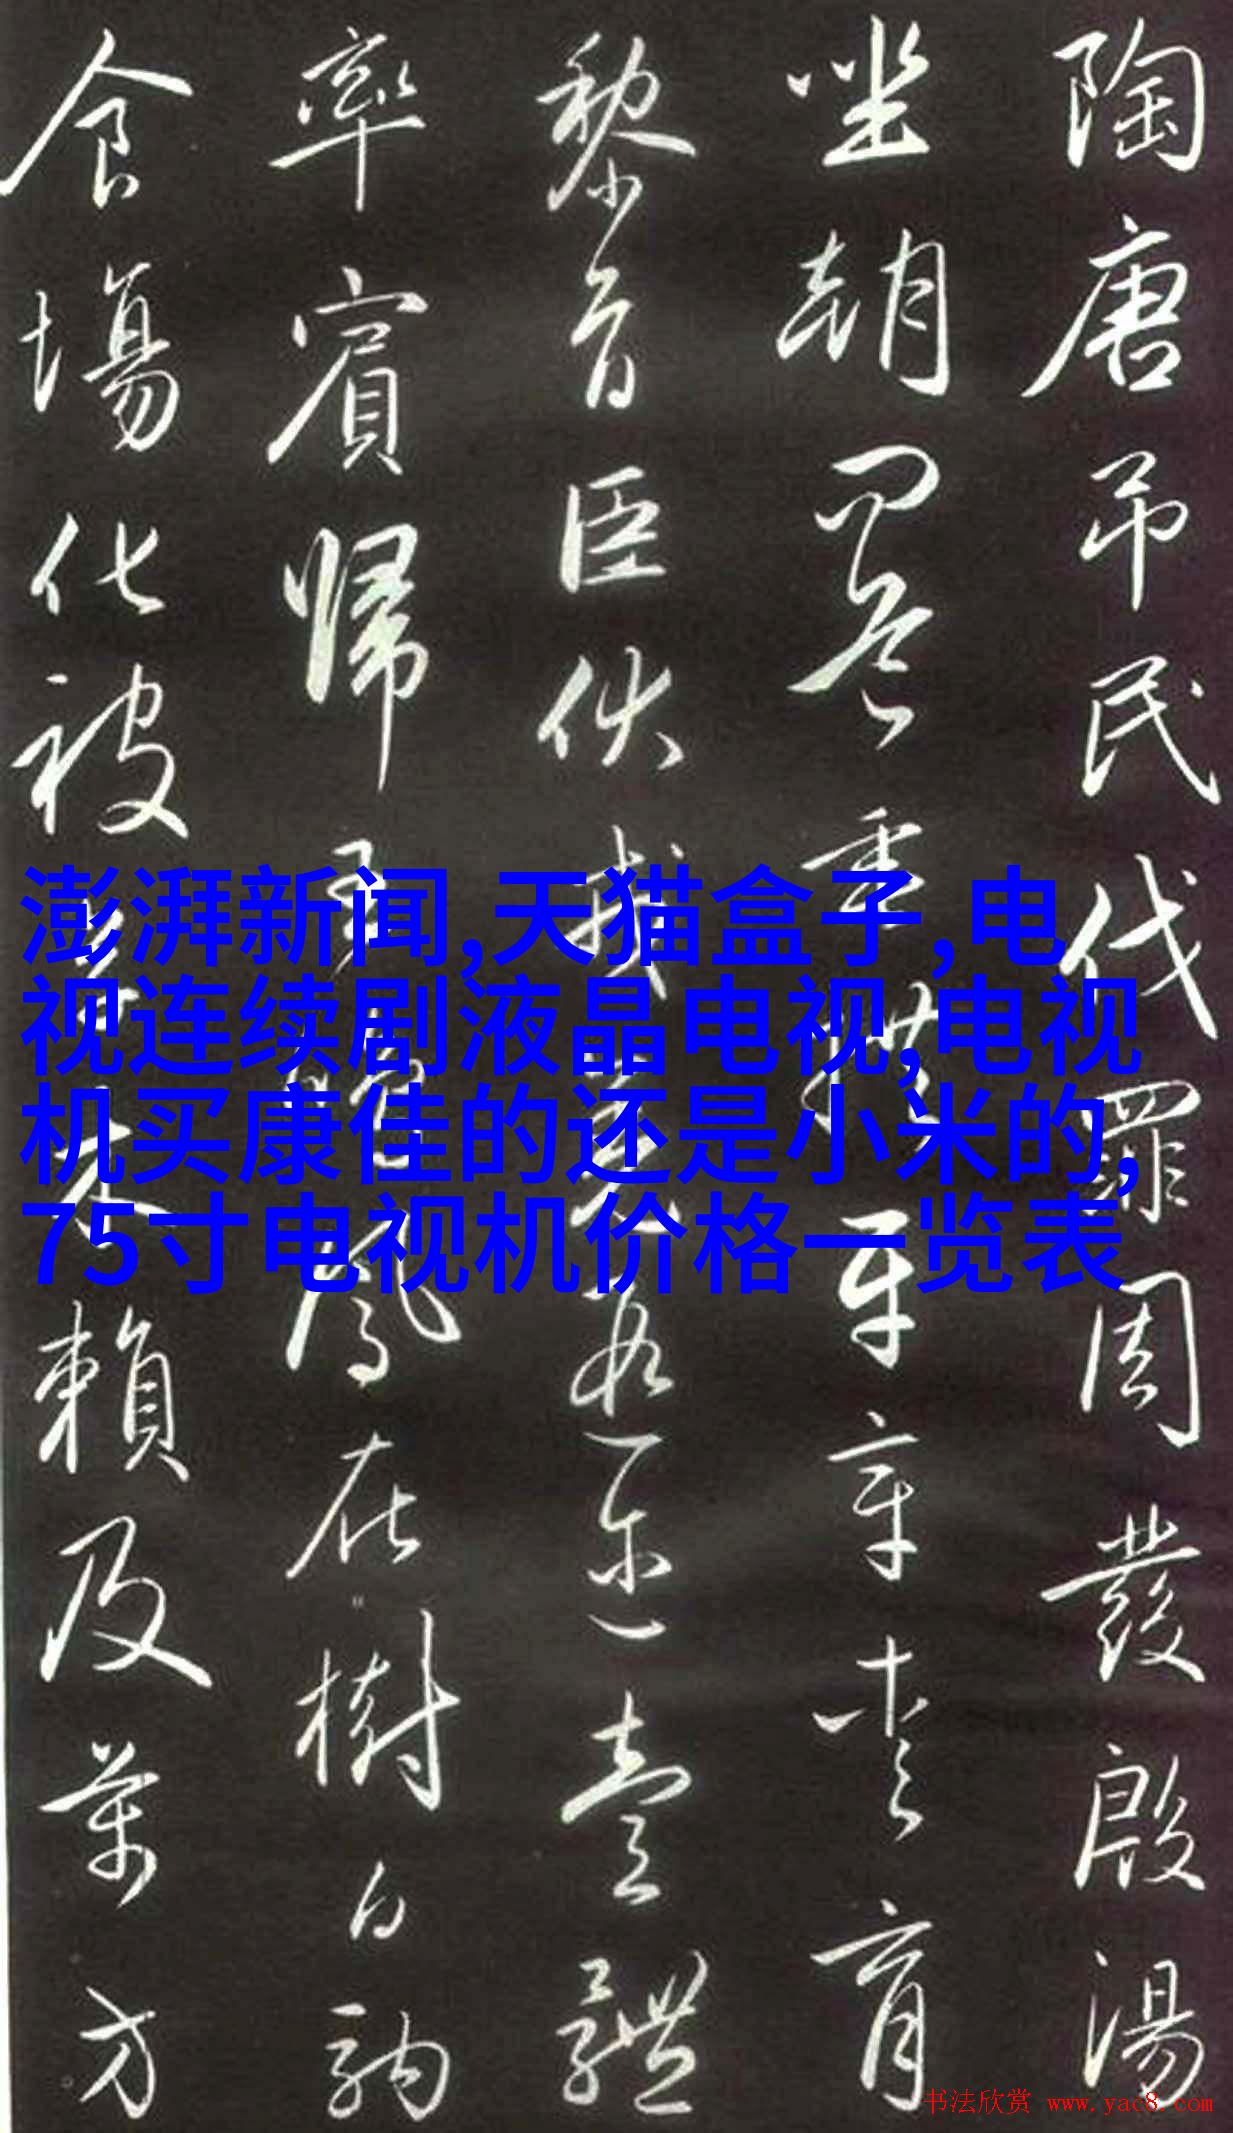 陶唐吊民伐罪周發殷湯
坐朝問道垂拱平章愛育
黎首臣伏戎羌遐邇壹體
率賓歸王鳴鳳在樹白駒
食場化被草木賴及萬方
澎湃新闻,天猫盒子,电
视连续剧液晶电视,电视
机买康佳的还是小米的,
75寸电视机价格一览表
书法欣赏 www.yac8.com